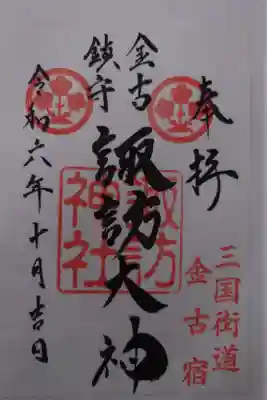 奉拝
三国街道
金古宿
金古
鎮守
諏訪大神
諏訪
神社
令和六年十月吉日